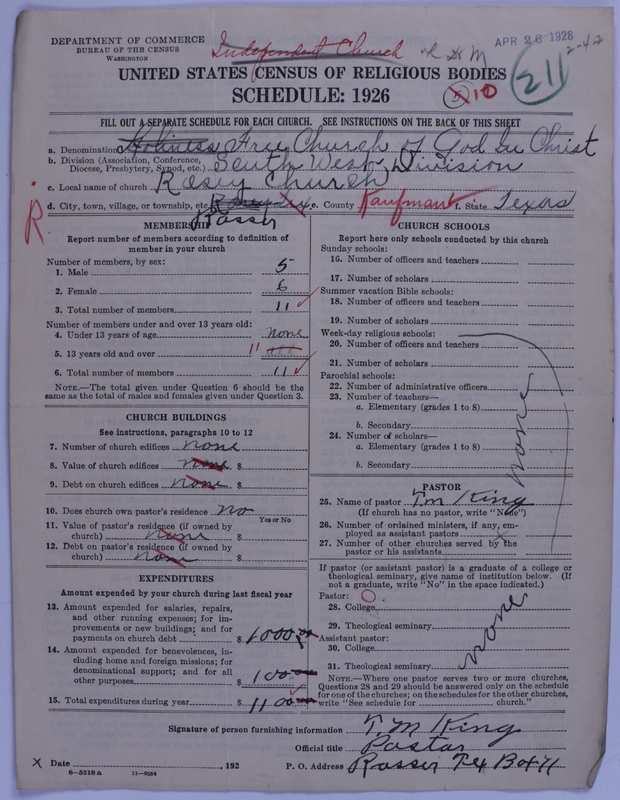 DEPARTMENT OF COMMERCE
BUREAU OF THE CENSUS
WASHINGTON
Independent Church
APR 26 1928
2-42
211
UNITED STATES CENSUS OF RELIGIOUS BODIES
SCHEDULE: 1926
10
FILL OUT A SEPARATE SCHEDULE FOR EACH CHURCH. SEE INSTRUCTIONS ON THE BACK OF THIS SHEET
a. Denomination Holiness Free Church of God In Christ
b. Division (Association, Conference, Diocese, Presbytery, Synod, etc.) South West Division
c. Local name of church Rosey Church
d. City, town, village, or township, etc. Rosey Tex e. County Kaufman f. State Texas
Rosser
R
MEMBERSHIP
Report number of members according to definition of
member in your church
Number of members, by sex:
1. Male 5
2. Female 6
3. Total number of members 11
Number of members under and over 13 years old:
4. Under 13 years of age none
5. 13 years old and over 11 all
6. Total number of members 11
NOTE.—The total given under Question 6 should be the
same as the total of males and females given under Question 3.
CHURCH BUILDINGS
See instructions, paragraphs 10 to 12
7. Number of church edifices none
8. Value of church edifices none $
9. Debt on church edifices none $
10. Does church own pastor's residence no
Yes or No
11. Value of pastor's residence (if owned by
church) none $
12. Debt on pastor's residence (if owned by
church) none $
EXPENDITURES
Amount expended by your church during last fiscal year
13. Amount expended for salaries, repairs,
and other running expenses; for im-
provements or new buildings; and for
payments on church debt $ 1000
14. Amount expended for benevolences, in-
cluding home and foreign missions; for
denominational support; and for all
other purposes $ 100
15. Total expenditures during year $ 1100
CHURCH SCHOOLS
Report here only schools conducted by this church
Sunday schools:
16. Number of officers and teachers
17. Number of scholars
Summer vacation Bible schools:
18. Number of officers and teachers
19. Number of scholars
Week-day religious schools:
20. Number of officers and teachers
21. Number of scholars
Parochial schools:
22. Number of administrative officers
23. Number of teachers—
a. Elementary (grades 1 to 8)
b. Secondary
24. Number of scholars—
a. Elementary (grades 1 to 8)
b. Secondary
none
PASTOR
25. Name of pastor T M King
(If church has no pastor, write "None")
26. Number of ordained ministers, if any, em-
ployed as assistant pastors
27. Number of other churches served by the
pastor or his assistants
If pastor (or assistant pastor) is a graduate of a college or
theological seminary, give name of institution below. (If
not a graduate, write "No" in the space indicated.)
Pastor: O
28. College
29. Theological seminary
Assistant pastor:
30. College
31. Theological seminary
none
NOTE.—Where one pastor serves two or more churches,
Questions 28 and 29 should be answered only on the schedule
for one of the churches; on the schedules for the other churches,
write "See schedule for church."
Signature of person furnishing information T M King
Official title Pastor
X Date , 192 P. O. Address Rosser Tex Box 71
8—5518a 11—9054